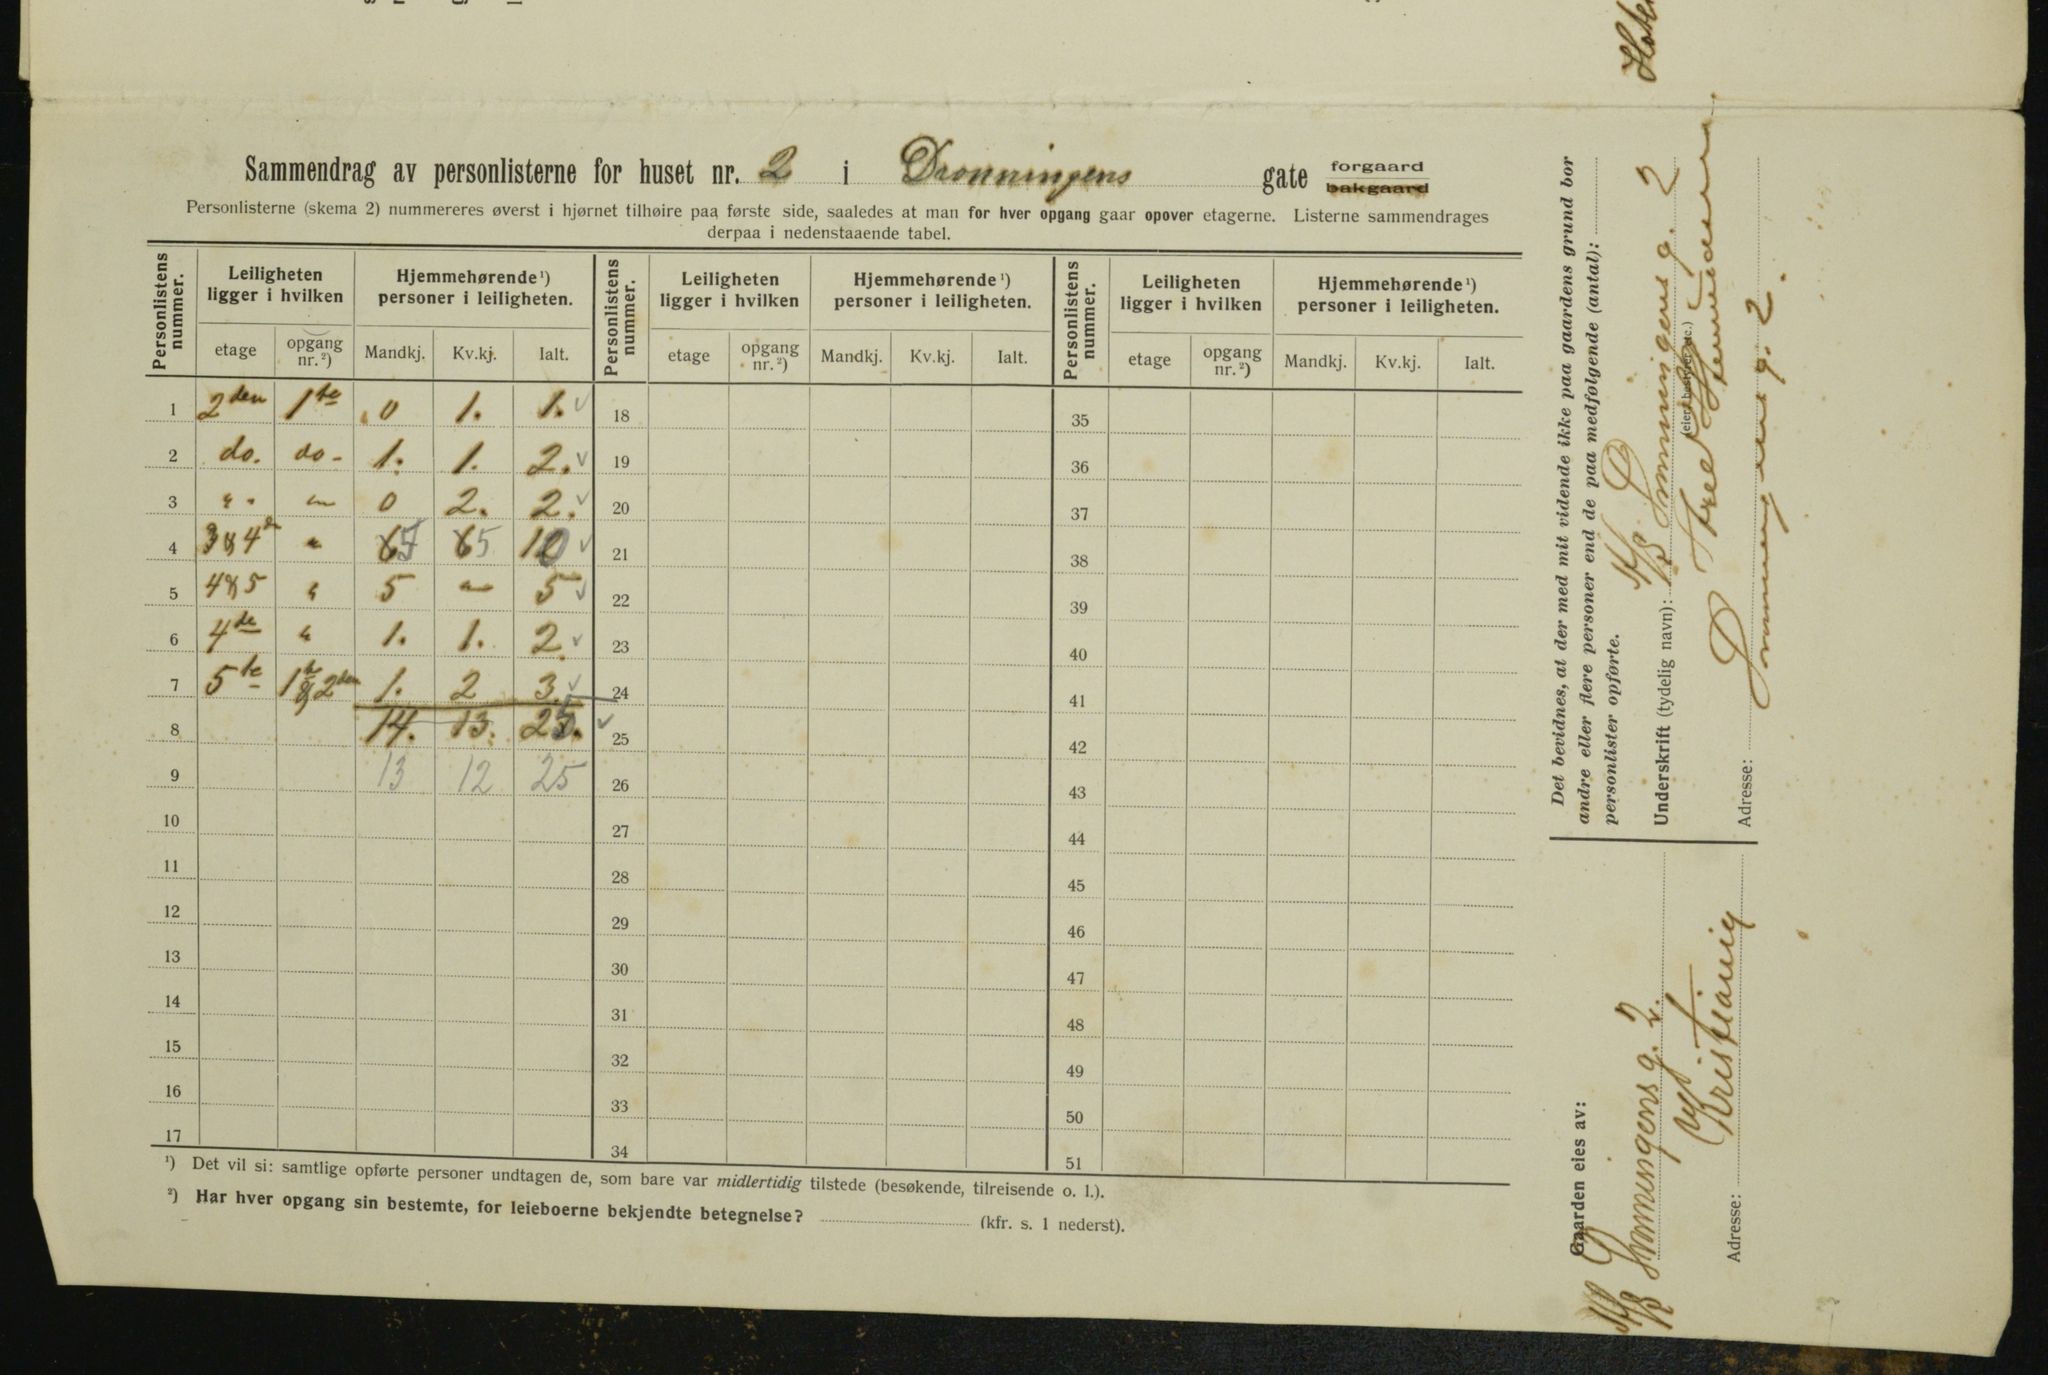 Sammendrag av personlisterne for huset nr. 2 i Dronningens gate forgaard
bakgaard
Personlisterne (skema 2) nummereres øverst i hjørnet tilhøire paa første side, saaledes at man for hver opgang gaar opover etagerne. Listerne sammendrages
derpaa i nedenstaaende tabel.
Personlistens nummer. Leiligheten ligger i hvilken Hjemmehørende ¹) personer i leiligheten. Personlistens nummer. Leiligheten ligger i hvilken Hjemmehørende ¹) personer i leiligheten. Personlistens nummer. Leiligheten ligger i hvilken Hjemmehørende ¹) personer i leiligheten.
etage opgang nr. ²) Mandkj. Kv.kj. Ialt. etage opgang nr. ²) Mandkj. Kv.kj. Ialt. etage opgang nr. ²) Mandkj. Kv.kj. Ialt.
1 2den 1te 0 1. 1. 18 35
2 do. do- 1. 1. 2. 19 36
3 " " 0 2. 2. 20 37
4 3&4de " 5 5 10 21 38
5 4&5 " 5 — 5 22 39
6 4de " 1. 1. 2. 23 40
7 5te 1te&2den 1. 2 3 24 41
8 14. 13. 25. 25 42
9 13 12 25 26 43
10 27 44
11 28 45
12 29 46
13 30 47
14 31 48
15 32 49
16 33 50
17 34 51
¹) Det vil si: samtlige opførte personer undtagen de, som bare var midlertidig tilstede (besøkende, tilreisende o. l.).
²) Har hver opgang sin bestemte, for leieboerne bekjendte betegnelse? (kfr. s. 1 nederst).
Det bevidnes, at der med mit vidende ikke paa gaardens grund bor
andre eller flere personer end de paa medfølgende (antal):
personlister opførte.
A/S Dronningens g. 2
Underskrift (tydelig navn):
(eier, bestyrer etc.)
Adresse: Dronningens g. 2.
Gaarden eies av:
A/S Dronningens g. 2.
Adresse: Kristiania